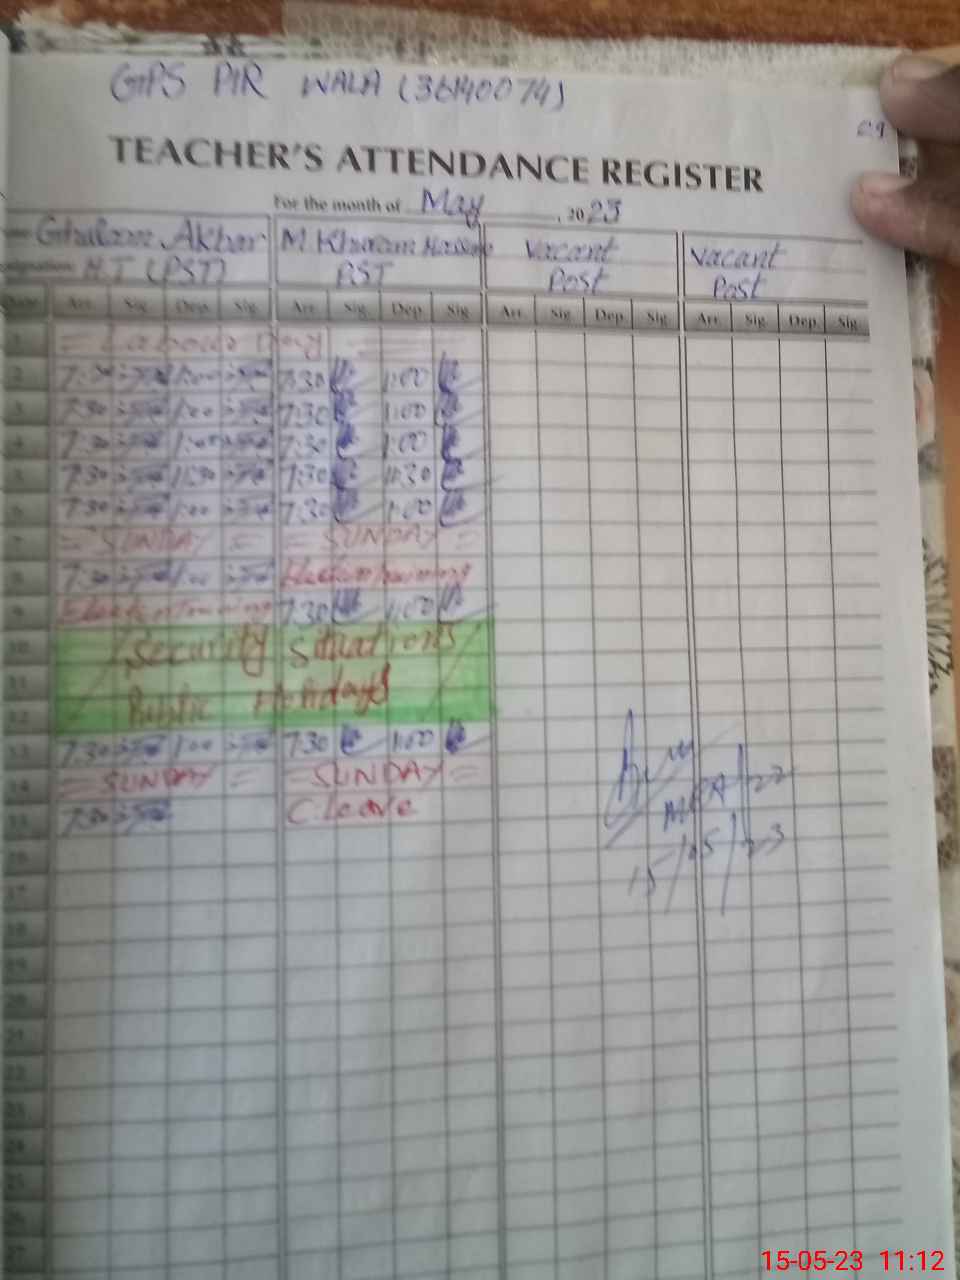 GPS PIR WALA (36140074)
29
TEACHER'S ATTENDANCE REGISTER
For the month of May, 2023
Ghulam Akbar M. Khuram Hassan Vacant Vacant
H.T (PST) PST Post Post
Arr. Sig. Dep. Sig. Arr. Sig. Dep. Sig. Arr. Sig. Dep. Sig. Arr. Sig. Dep. Sig.
1 = Labour Day
2 7:30 1:00 7:30 1:00
3 7:30 1:00 7:30 1:00
4 7:30 1:00 7:30 1:00
5 7:30 11:30 7:30 11:30
6 7:30 1:00 7:30 1:00
7 = SUNDAY = = SUNDAY =
8 7:30 1:00 Election Training
9 Election Training 7:30 1:00
10 Security situations
11
12 Public Holidays
13 7:30 1:00 7:30 1:00
14 = SUNDAY = = SUNDAY =
15 7:30 C. leave
MEA 22
15/05/23
17
18
19
20
21
22
23
24
25
26
27
15-05-23 11:12